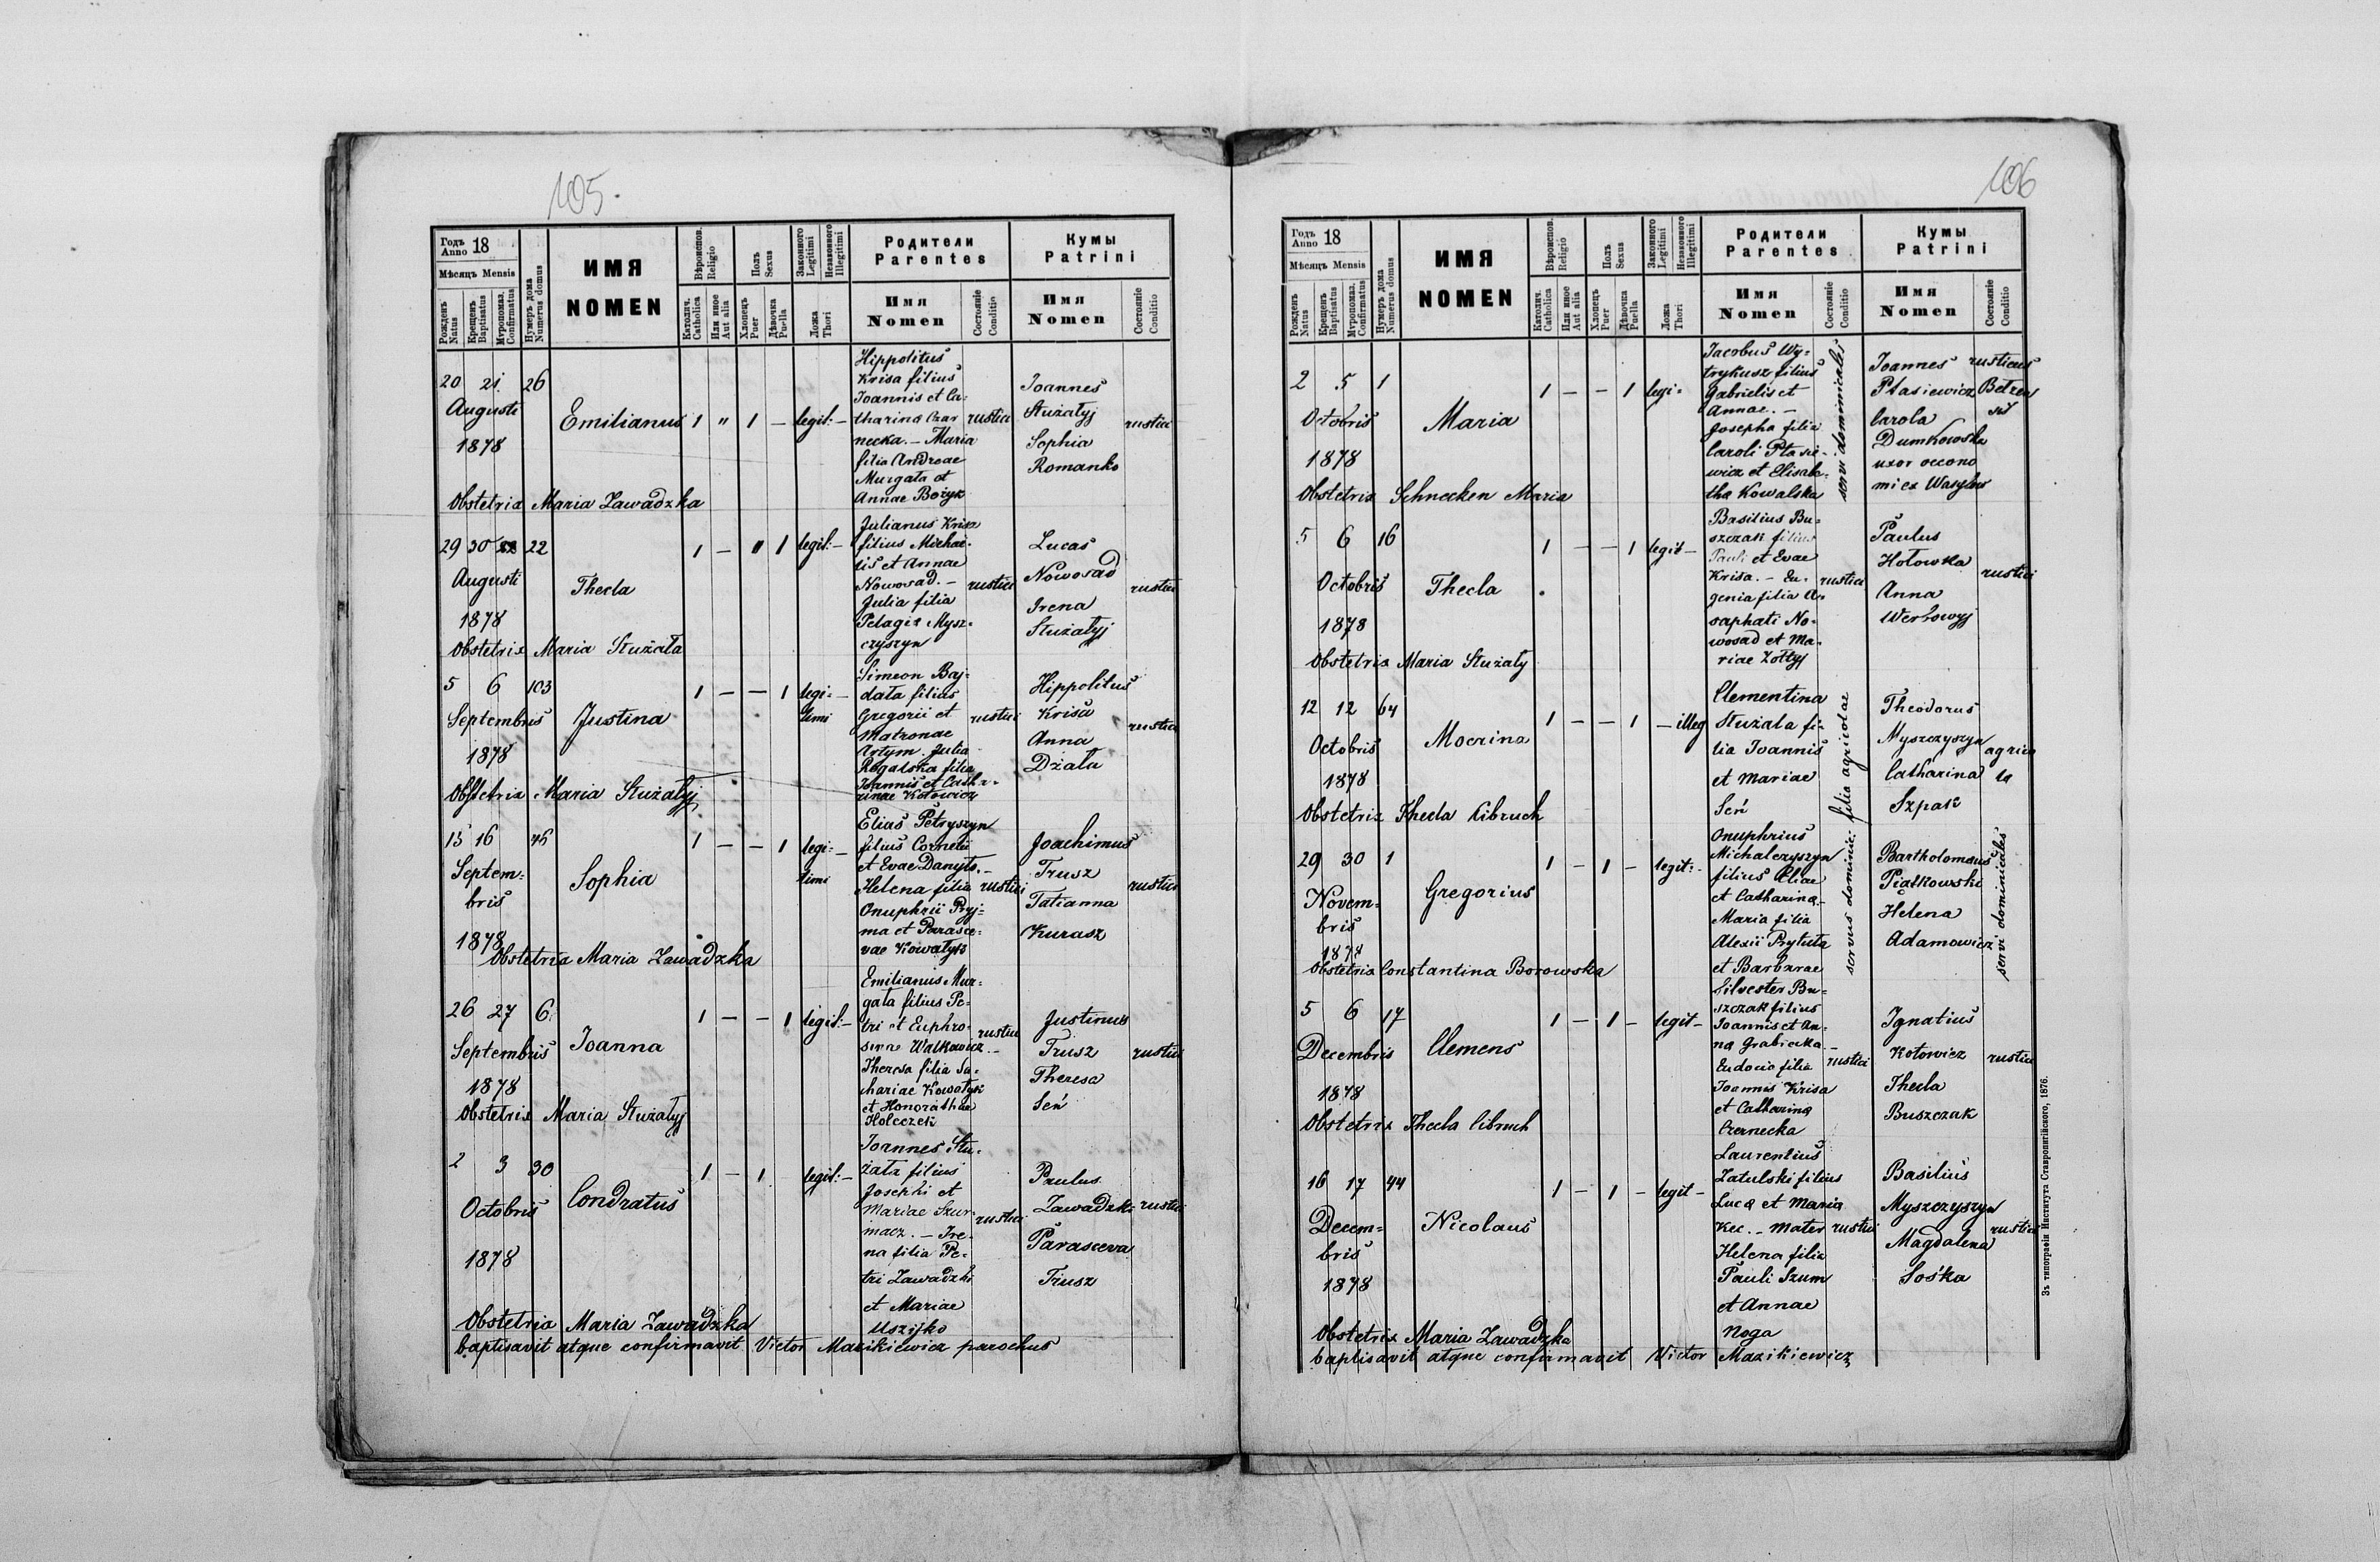 105.
Годъ Anno 18
Мѣсяцъ Mensis
Рожденъ Natus
Крещенъ Baptisatus
Мѵропомаз. Confirmatus
Нумеръ дома Numerus domus
ИМЯ
NOMEN
Вѣроиспов. Religio
Католич. Catholica
Или иное Aut alia
Полъ Sexus
Хлопецъ Puer
Дѣвочка Puella
Законного Legitimi
Незаконного Illegitimi
Ложа Thori
Родители
Parentes
Имя
Nomen
Состояніе Conditio
Кумы
Patrini
Имя
Nomen
Состояніе Conditio
20 21 26
Augusti
1878
Emilianus 1 " 1 — legit: —
Hippolitus
Krisa filius
Joannis et Ca-
tharina Czar
necka. — Maria
filia Andreae
Murgała et
Annae Bożyk
rustici
Joannes
Stużałyj
Sophia
Romanko
rustici
Obstetrix Maria Zawadzka
29 30 22
Augusti
1878
Thecla
1 — " 1 legit: —
Julianus Krisa
filius Michae-
lis et Annae
Nowosad. —
Julia filia
Pelagia Mysz-
czyszyn
rustici
Lucas
Nowosad
Irena
Stużałyj
rustici
Obstetrix Maria Stużała
5 6 103
Septembris
1878
Justina
1 — — 1 legi= —
timi
Simeon Baj-
data filius
Gregorii et
Matronae
Artym. Julia
Rogalska filia
Joannis et Catha-
rinae Kotowicz
rustici
Hippolitus
Krisa
Anna
Działa
rustici
Obstetrix Maria Stużałyj
15 16 45
Septem=
bris
1878
Sophia
1 — — 1 legi= —
timi
Elias Petryszyn
filius Cornelii
et Evae Danyło. —
Helena filia
Onuphrii Pryj=
ma et Parasce=
vae Kowałyk
rustici
Joachimus
Trusz
Tatianna
Kurasz
rustici
Obstetrix Maria Zawadzka
26 27 6
Septembris
1878
Joanna
1 — — 1 legit: —
Emilianus Mur=
gała filius Pe-
tri et Euphro-
sinae Walkowicz. —
Theresa filia Za-
chariae Kowałyk
et Honorathae
Holeczek
rustici
Justinus
Trusz
Theresa
Seń
rustici
Obstetrix Maria Stużałyj
2 3 30
Octobris
1878
Condratus
1 — 1 legit: —
Joannes Stu-
żała filius
Josephi et
Mariae Szur-
macz. — Ire-
na filia Pe-
tri Zawadzki
et Mariae
Uszijko
rustici
Paulus
Zawadzki
Parasceva
Trusz
rustici
Obstetrix Maria Zawadzka
baptisavit atque confirmavit Victor Mazikiewicz parochus
106
Годъ Anno 18
Мѣсяцъ Mensis
Рожденъ Natus
Крещенъ Baptisatus
Мѵропомаз. Confirmatus
Нумеръ дома Numerus domus
ИМЯ
NOMEN
Вѣроиспов. Religio
Католич. Catholica
Или иное Aut alia
Полъ Sexus
Хлопецъ Puer
Дѣвочка Puella
Законного Legitimi
Незаконного Illegitimi
Ложа Thori
Родители
Parentes
Имя
Nomen
Состояніе Conditio
Кумы
Patrini
Имя
Nomen
Состояніе Conditio
2 5 1
Octobris
1878
Maria
1 — — 1 legi=
Jacobus Wy=
trykusz filius
Gabrielis et
Annae. —
Josepha filia
Caroli Ptasie-
wicz et Elisabe-
tha Kowalska
servi dominicales
Joannes
Ptasiewicz
Carola
Dumkowska
uxor oecono
mi ex Wasylow
rusticus
Obstetrix Schnecken Maria
5 6 16
Octobris
1878
Thecla
1 — — 1 legit —
Basilius Bu=
szczak filius
Pauli et Evae
Krisa. — Eu-
genia filia Jo-
saphati No-
wosad et Ma-
riae Żołtyj
rustici
Paulus
Hołowka
Anna
Werbowyj
rustici
Obstetrix Maria Stużały
12 12 64
Octobris
1878
Mocrina
1 — — 1 — illeg
Clementina
Stużała fi-
lia Joannis
et Mariae
Seń
filia agricolae
Theodorus
Myszczyszyn
Catharina
Szpak
agrico
la
Obstetrix Thecla Cibruch
29 30 1
Novem=
bris
1878
Gregorius
1 — 1 — legit: —
Onuphrius
Michalczyszyn
filius Eliae
et Catharina —
Maria filia
Alexii Prytuła
et Barbarae
servus dominic:
Bartholomeus
Piatkowski
Helena
Adamowicz
servi dominicales
Obstetrix Constantina Borowska
5 6 17
Decembris
1878
Clemens
1 — 1 — legit —
Silvester Bu=
szczak filius
Joannis et An-
na Grabiecka —
Eudocio filia
Joannis Krisa
et Catharina
Czernecka
rustici
Ignatius
Kotowicz
Thecla
Buszczak
rustici
Obstetrix Thecla Cibruch
16 17 44
Decem=
bris
1878
Nicolaus
1 — 1 — legit —
Laurentius
Zatulski filius
Luca et Maria
Kec. — Mater
Helena filia
Pauli Szum
et Annae
Noga
rustici
Basilius
Myszczyszyn
Magdalena
Sośka
rustici
Obstetrix Maria Zawadzka
baptisavit atque confirmavit Victor Mazikiewicz
Зъ типографіи Института Ставропигійского, 1876.